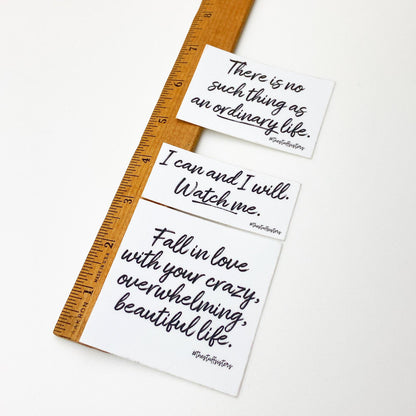 There is no
such thing as
an ordinary life.
#thestuffsisters
I can and I will.
Watch me.
#thestuffsisters
Fall in love
with your crazy,
overwhelming,
beautiful life.
#thestuffsisters
8
7
6
5
4
3
2
1
MADE IN U.S.A.